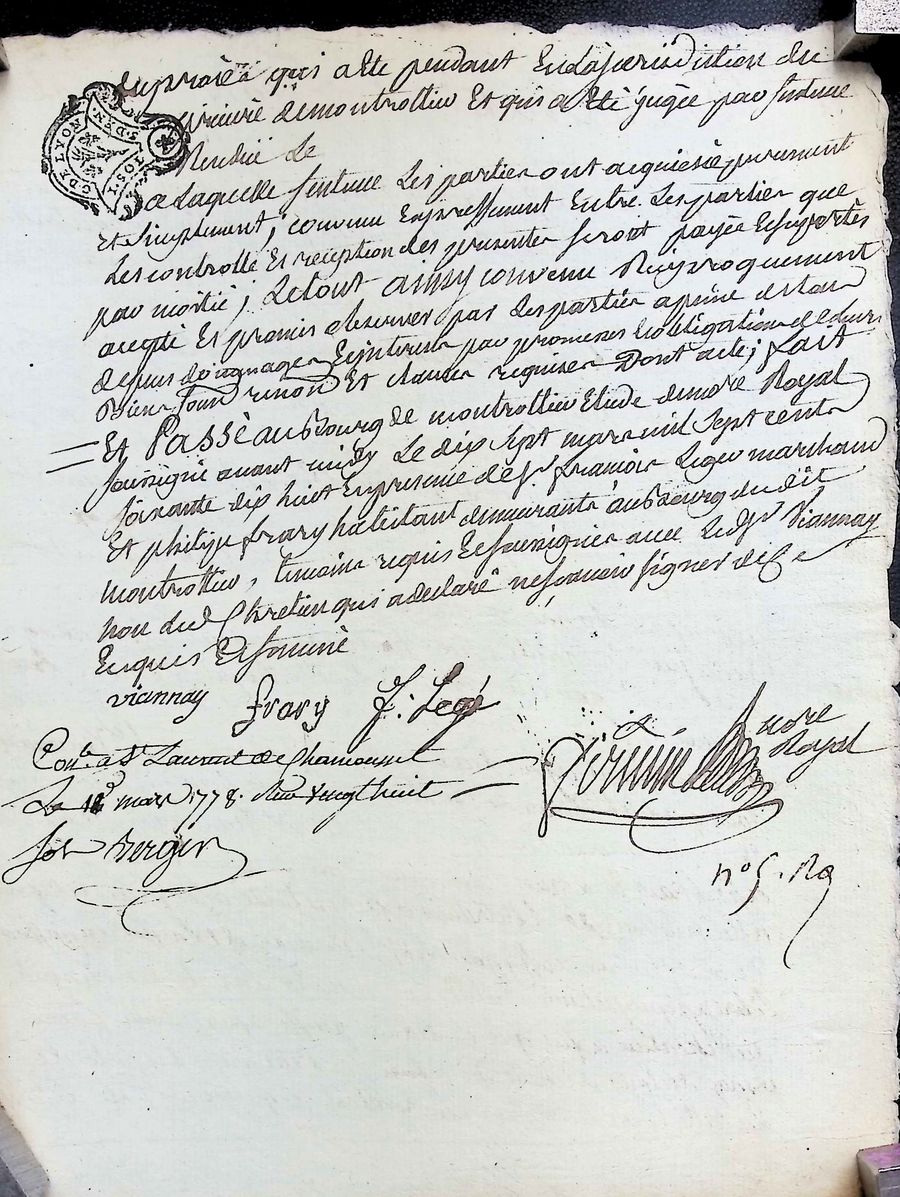 du procès qui a été pendant En la jurisdiction du
prieuré de montrottier Et qui a Eté jugée par sentence
Rendüe Le
a Laquelle sentence Les parties ont acquiescé purement
Et simplement; convenu Expressement Entre Les parties que
Les controlle Et reception des presentes seront payés Et suportés
par moitié; Le tout aussy convenu Reciproquement
accepté Et promis observer par Les parties a peine de tous
depens dommages Et interets par promesses Et obligation de Leurs
Biens soum renon Et clauses requises Dont acte; fait
Et Passé au Bourg de montrottier Etude du nore Royal
soussigné avant midy Le dix sept mars mil sept cents
soixante dix huit En presence de Sr. françois Leger marchand
Et philipe frary habitant demeurants au Bourg du dit
montrottier, temoins requis Et soussignés avec Led. Sr Viannay
non dud. Chretien qui a declaré ne sçavoir signer de ce
Enquis Et sommé
viannay frary f: Legé
nore
Royal
Con.le a St Laurent de Chamousset
Le 18 mars 1778. Reçu vingt huit
sols Bergier
no 5. Ra
G. DE LYON